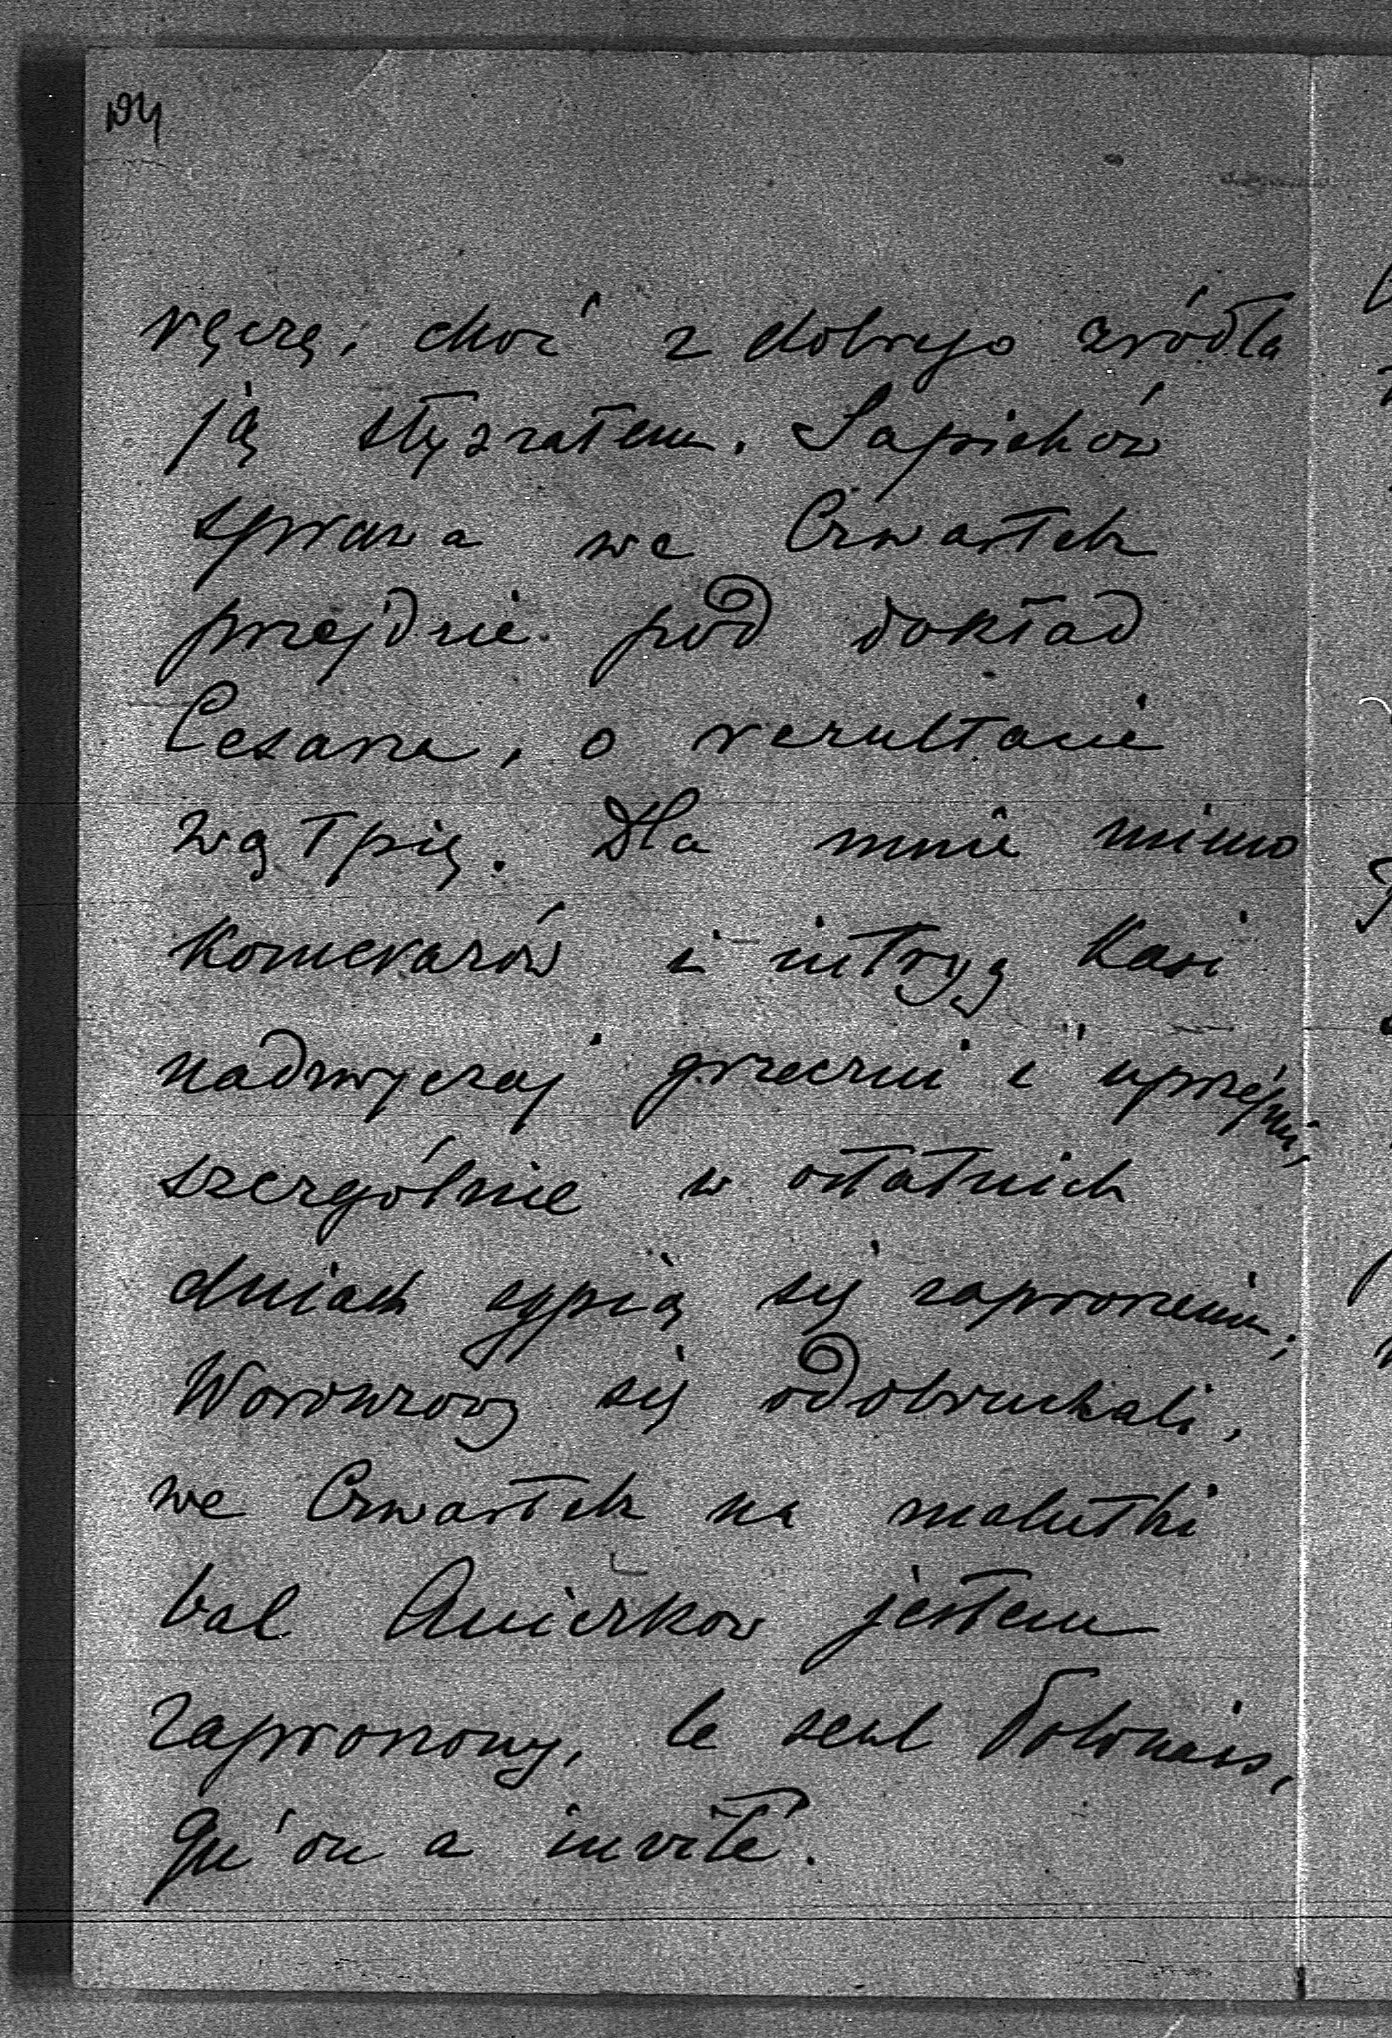 194
ręczę, choć z dobrego źródła
ją słyszałem. Sapiehów
sprawa we Czwartek
przejdzie pod dokład
Cesarza, o rezultacie
wątpię. Dla mnie mimo
komerazów i intryg Kasi
nadzwyczaj grzeczni i uprzejmi,
szczególnie w ostatnich
dniach sypią się zaproszenia;
Woronzovy się odobruchali,
we Czwartek na malutki
bal Aniczkow jestem
zaproszony, le seul Polonais,
qu'on a invité.